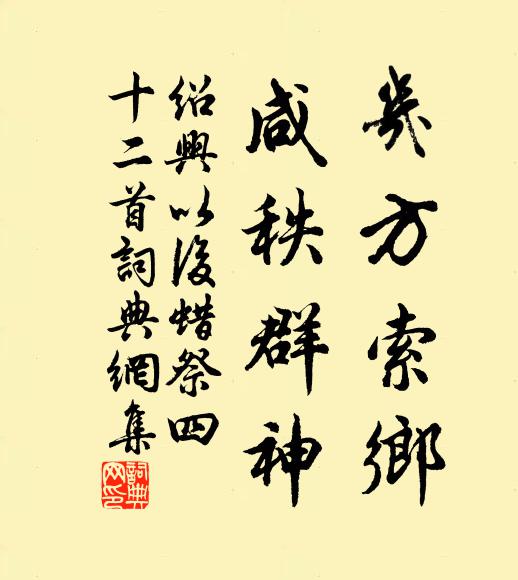 方索鄉
咸秩群神
紹興以後蜡祭四
十二首詞典網集
詞典
网印